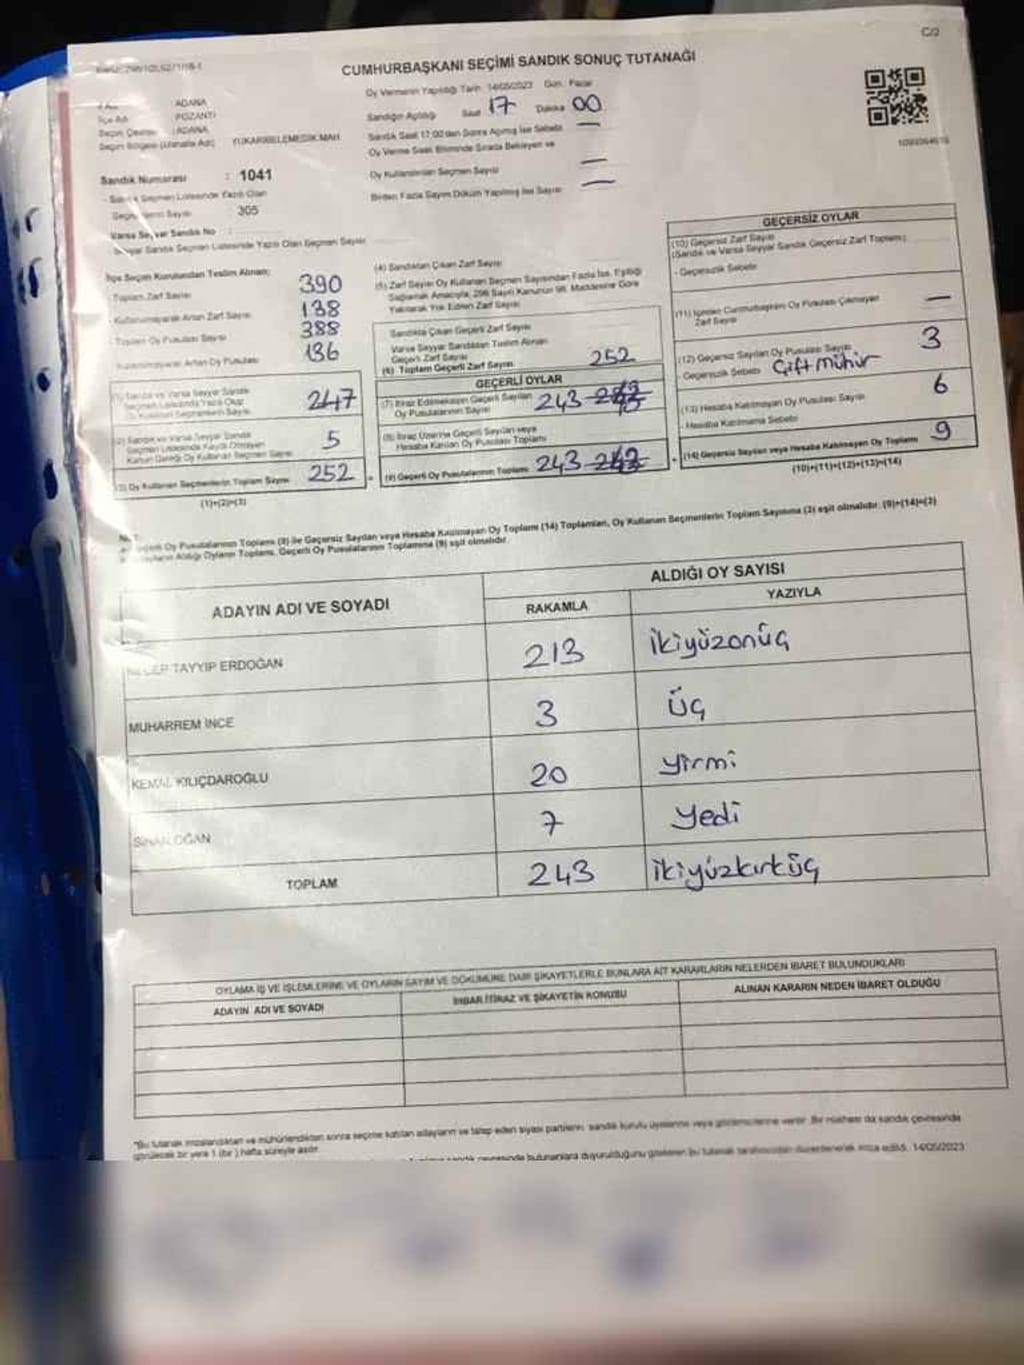 C/2
CUMHURBAŞKANI SEÇİMİ SANDIK SONUÇ TUTANAĞI
Oy Vermenin Yapıldığı Tarih: 14/05/2023 Gün: Pazar
Sandığın Açıldığı Saat 17 Dakika 00
Sandık Saat 17:00'den Sonra Açılmış İse Sebebi —
Oy Verme Saati Bitiminde Sırada Bekleyen ve
Oy Kullandırılan Seçmen Sayısı —
Birden Fazla Sayım Döküm Yapılmış İse Sayısı —
ADANA
İlçe Adı POZANTI
Seçim Çevresi : ADANA
Seçim Bölgesi (Mahalle Adı) YUKARIBELEMEDİK MAH.
Sandık Numarası : 1041
Sandık Seçmen Listesinde Yazılı Olan
Seçmenlerin Sayısı 305
Varsa Seyyar Sandık No :
Seyyar Sandık Seçmen Listesinde Yazılı Olan Seçmen Sayısı
İlçe Seçim Kurulundan Teslim Alınan;
Toplam Zarf Sayısı 390
Kullanılmayarak Artan Zarf Sayısı 138
Toplam Oy Pusulası Sayısı 388
Kullanılmayarak Artan Oy Pusulası 136
(1) Sandık ve Varsa Seyyar Sandık
Seçmen Listesinde Yazılı Olup
Oy Kullanan Seçmenlerin Sayısı 247
(2) Sandık ve Varsa Seyyar Sandık
Seçmen Listesinde Kayıtlı Olmayan
Kanun Gereği Oy Kullanan Seçmen Sayısı 5
(3) Oy Kullanan Seçmenlerin Toplam Sayısı 252
(1)+(2)=(3)
(4) Sandıktan Çıkan Zarf Sayısı
(5) Zarf Sayısı Oy Kullanan Seçmen Sayısından Fazla İse, Eşitliği
Sağlamak Amacıyla, 298 Sayılı Kanunun 98. Maddesine Göre
Yakılarak Yok Edilen Zarf Sayısı
Sandıkta Çıkan Geçerli Zarf Sayısı
Varsa Seyyar Sandıktan Teslim Alınan
Geçerli Zarf Sayısı
(6) Toplam Geçerli Zarf Sayısı 252
GEÇERLİ OYLAR
(7) İtiraz Edilmeksizin Geçerli Sayılan
Oy Pusulalarının Sayısı 243
(8) İtiraz Üzerine Geçerli Sayılan veya
Hesaba Katılan Oy Pusulası Toplamı
(9) Geçerli Oy Pusulalarının Toplamı 243
GEÇERSİZ OYLAR
(10) Geçersiz Zarf Sayısı
(Sandık ve Varsa Seyyar Sandık Geçersiz Zarf Toplamı)
- Geçersizlik Sebebi
(11) İçinden Cumhurbaşkanı Oy Pusulası Çıkmayan
Zarf Sayısı —
(12) Geçersiz Sayılan Oy Pusulası Sayısı 3
- Geçersizlik Sebebi Çift mühür
(13) Hesaba Katılmayan Oy Pusulası Sayısı 6
- Hesaba Katılmama Sebebi
(14) Geçersiz Sayılan veya Hesaba Katılmayan Oy Toplamı 9
(10)+(11)+(12)+(13)=(14)
Geçerli Oy Pusulalarının Toplamı (9) ile Geçersiz Sayılan veya Hesaba Katılmayan Oy Toplamı (14) Toplamları, Oy Kullanan Seçmenlerin Toplam Sayısına (3) eşit olmalıdır. (9)+(14)=(3)
Adayların Aldığı Oyların Toplamı, Geçerli Oy Pusulalarının Toplamına (9) eşit olmalıdır.
ADAYIN ADI VE SOYADI
ALDIĞI OY SAYISI
RAKAMLA YAZIYLA
TAYYİP ERDOĞAN 213 ikiyüzonüç
MUHARREM İNCE 3 üç
KEMAL KILIÇDAROĞLU 20 yirmi
SİNAN OĞAN 7 yedi
TOPLAM 243 ikiyüzkırküç
OYLAMA İŞ VE İŞLEMLERİNE VE OYLARIN SAYIM VE DÖKÜMÜNE DAİR ŞİKAYETLERLE BUNLARA AİT KARARLARIN NELERDEN İBARET BULUNDUKLARI
ADAYIN ADI VE SOYADI
İHBAR İTİRAZ VE ŞİKAYETİN KONUSU
ALINAN KARARIN NEDEN İBARET OLDUĞU
"Bu tutanak imzalandıktan ve mühürlendikten sonra seçime katılan adayların ve talep eden siyasi partilerin sandık kurulu üyelerine veya gözlemcilerine verilir. Bir nüshası da sandık çevresinde
görülecek bir yere 1 (bir) hafta süreyle asılır.
bulunanlara duyurulduğunu gösteren bu tutanak tarafımızdan düzenlenerek imza edildi. 14/05/2023